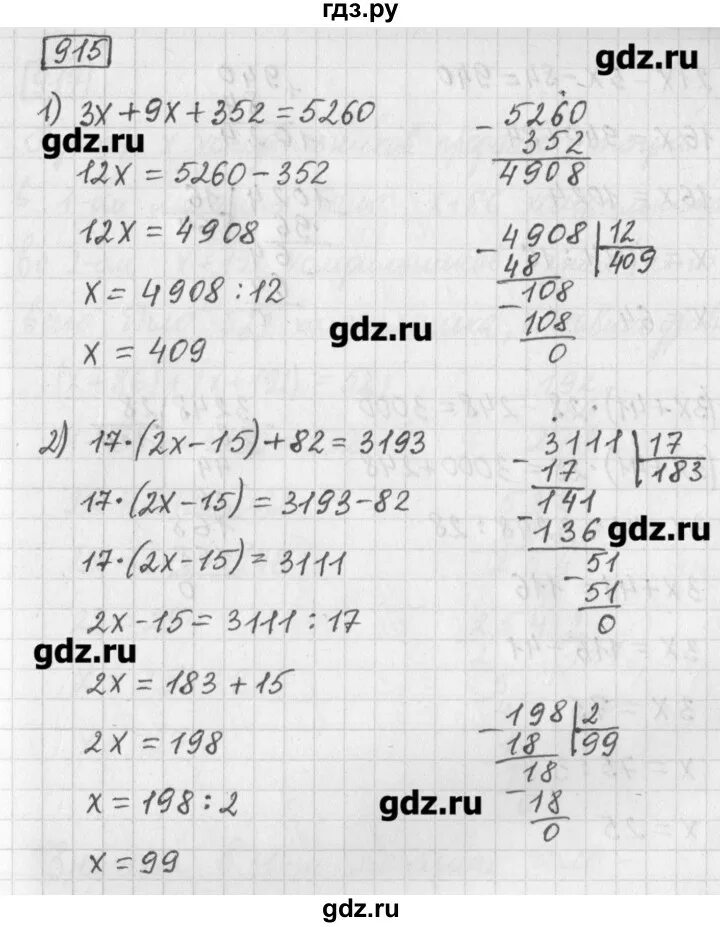 гдз.ру
915
gdz.ru
1) 3x+9x+352=5260
gdz.ru
12x = 5260-352
12x = 4908
x = 4908 : 12
gdz.ru
x = 409
- 5260
352
4908
- 4908 | 12
48 409
- 108
108
0
2) 17·(2x-15)+82=3193
17·(2x-15) = 3193-82
17·(2x-15) = 3111
2x-15 = 3111 : 17
gdz.ru
2x = 183 + 15
2x = 198
x = 198 : 2
x = 99
- 3111 | 17
17 183
- 141
136
gdz.ru
- 51
51
0
- 198 | 2
18 99
- 18
18
0
gdz.ru
gdz.ru